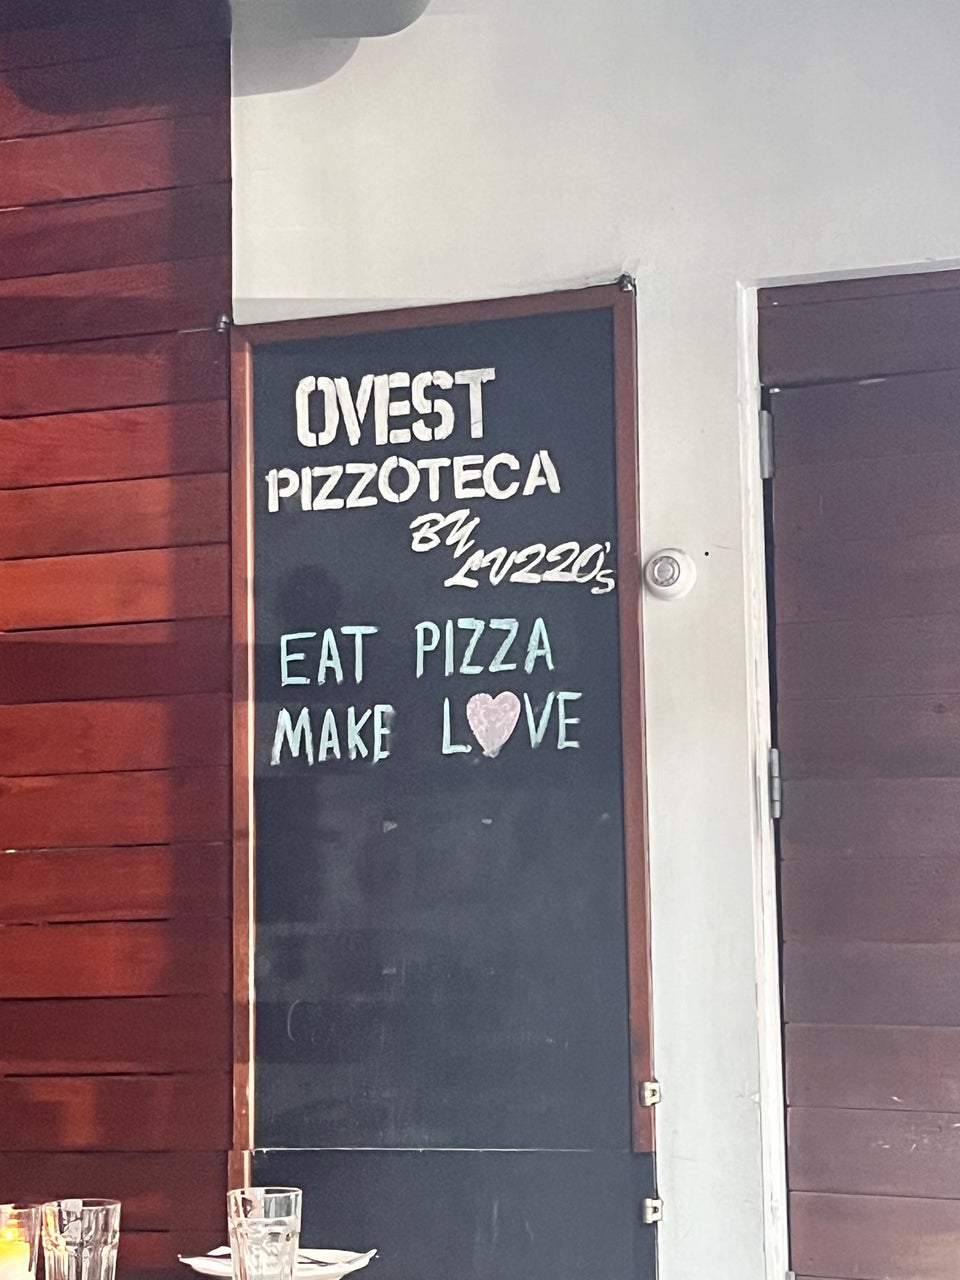 OVEST
PIZZOTECA
BY
LUZZO's
EAT PIZZA
MAKE L♥VE